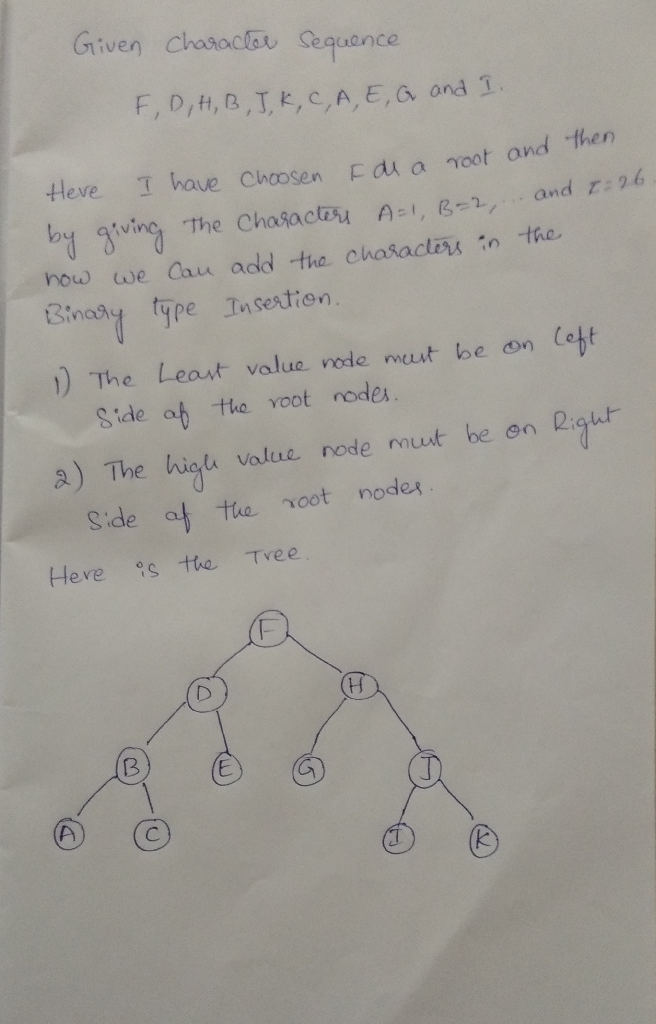 Given Character Sequence
F, D, H, B, J, K, C, A, E, G and I.
Here I have Choosen F as a root and then
by giving The Characters A=1, B=2, ... and Z=26.
now we Can add the characters in the
Binary type Insertion.
1) The Least value node must be on left
Side of the root nodes.
2) The high value node must be on Right
Side of the root nodes.
Here is the Tree.
F
D H
B E G J
A C I K